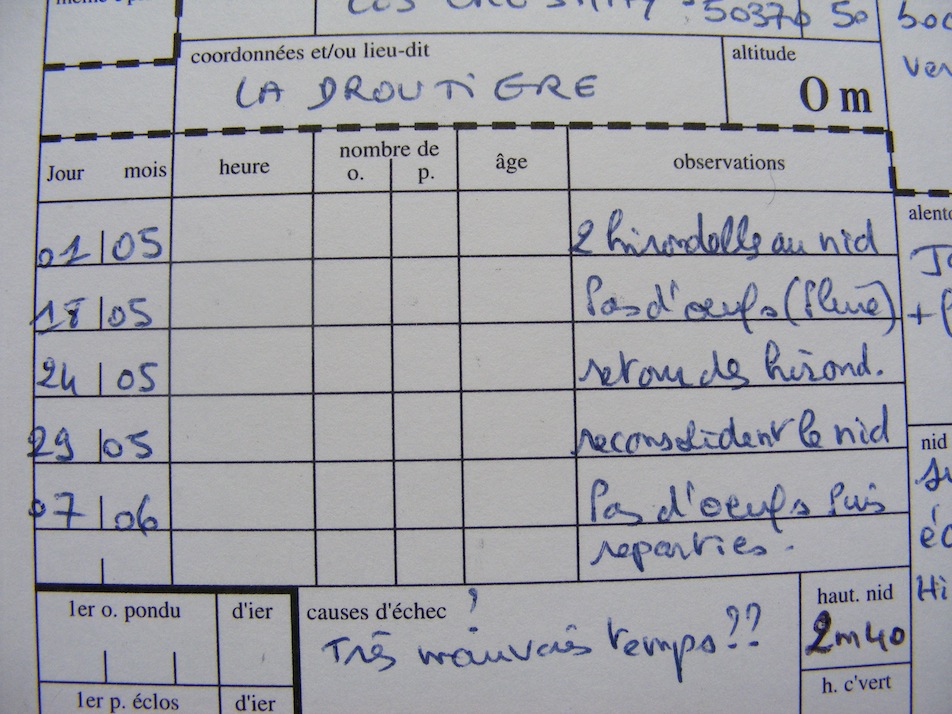 50370 50
coordonnées et/ou lieu-dit
altitude
LA DROUTIERE
0 m
Jour mois
heure
nombre de
o. p.
âge
observations
01 05 2 hirondelle au nid
18 05 Pas d'oeufs (Pluie)
24 05 retour des hirond.
29 05 reconsolident le nid
07 06 Pas d'oeufs Puis
reparties.
1er o. pondu
d'ier
causes d'échec ?
Très mauvais temps??
haut. nid
2m40
h. c'vert
1er p. éclos
d'ier
nid
Hi